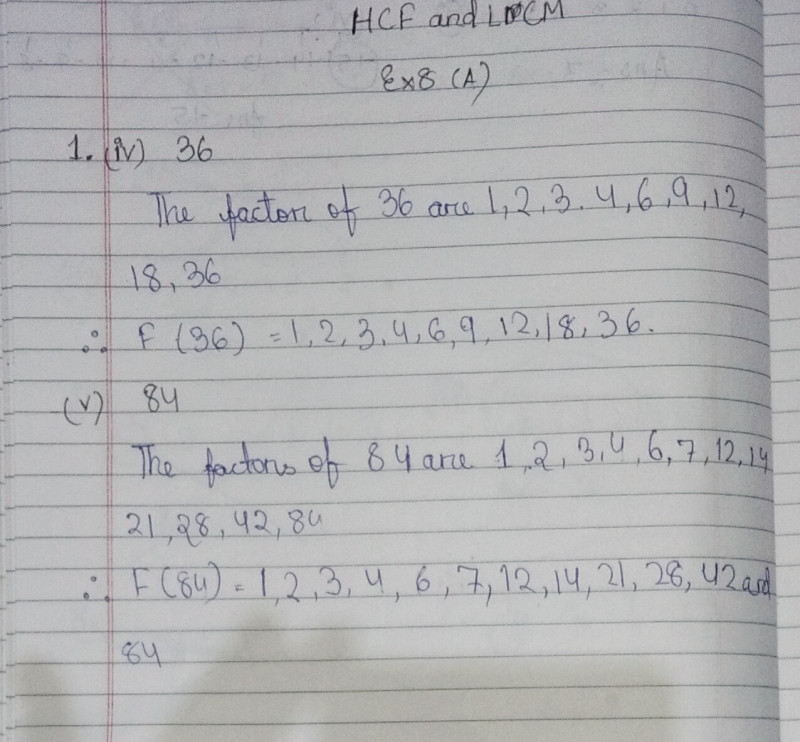 HCF and LCM
Ex8 (A)
1. (iv) 36
The factors of 36 are 1, 2, 3. 4, 6, 9, 12,
18, 36
∴ F (36) = 1, 2, 3, 4, 6, 9, 12, 18, 36.
(v) 84
The factors of 84 are 1, 2, 3, 4, 6, 7, 12, 14
21, 28, 42, 84
∴ F(84) = 1, 2, 3, 4, 6, 7, 12, 14, 21, 28, 42 and
84